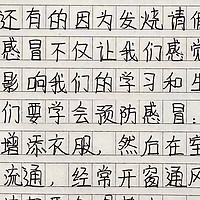 还有的因为发烧请
感冒不仅让我们感觉
影响我们的学习和生
们要学会预防感冒：
增添衣服，然后在室
流通，经常开窗通风